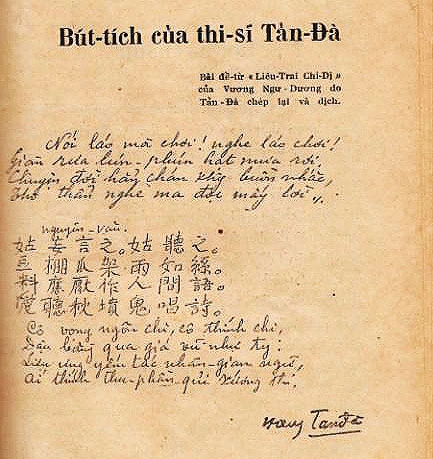 Bút-tích của thi-sĩ Tản-Đà
Bài đề-từ «Liêu-Trai Chí-Dị»
của Vương Ngư-Dương do
Tản-Đà chép lại và dịch.
Nói láo mà chơi! nghe láo chơi!
Giàn dưa lún-phún hạt mưa rơi,
Chuyện đời hẳn chán không buồn nhắc,
Thơ thẩn nghe ma đọc mấy lời
nguyên-văn.
姑妄言之。姑聽之。
豆棚瓜架雨如絲。
料應厭作人間語。
愛聽秋墳鬼唱詩。
Cô vọng ngôn chi, cô thính chi,
Đậu bằng qua giá vũ như ty:
Liệu ưng yếm tác nhân-gian ngữ,
Ái thính thu-phần quỉ xướng thi.
Tanđà